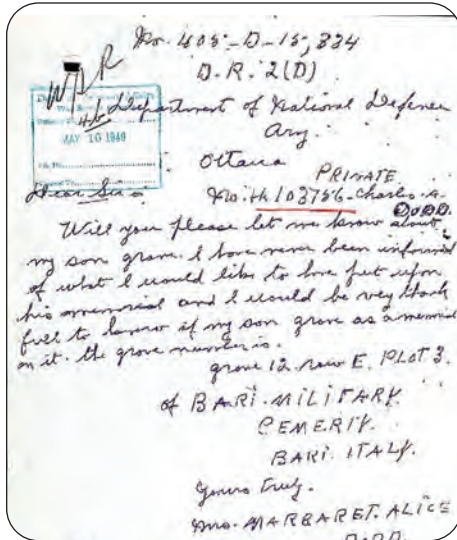 No. 405-D-15,334
D.R. 2(D)
Department of National Defence
Army.
MAY 10 1949
Ottawa
PRIVATE
Dear Sir
No. H.103756. Charles. A.
DODD.
Will you please let me know about
my son grave. I have never been informed
of what I would like to have put upon
his memorial and I would be very thank
full to know if my son grave as a memorial
on it. the grave number is.
grave 12. row E. PLOT 3.
of BARI. MILITARY.
BARI. ITALY.
yours truly.
Mrs. MARGARET. ALICE
DODD.